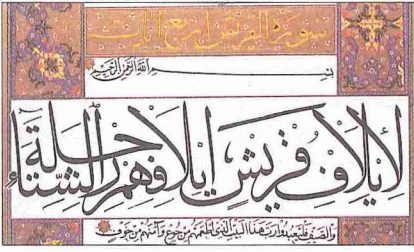 سورة القريش اربع آيات
بسم الله الرحمن الرحيم
لإيلاف قريش إيلافهم رحلة الشتاء
والصيف فليعبدوا رب هذا البيت الذي أطعمهم من جوع وآمنهم من خوف